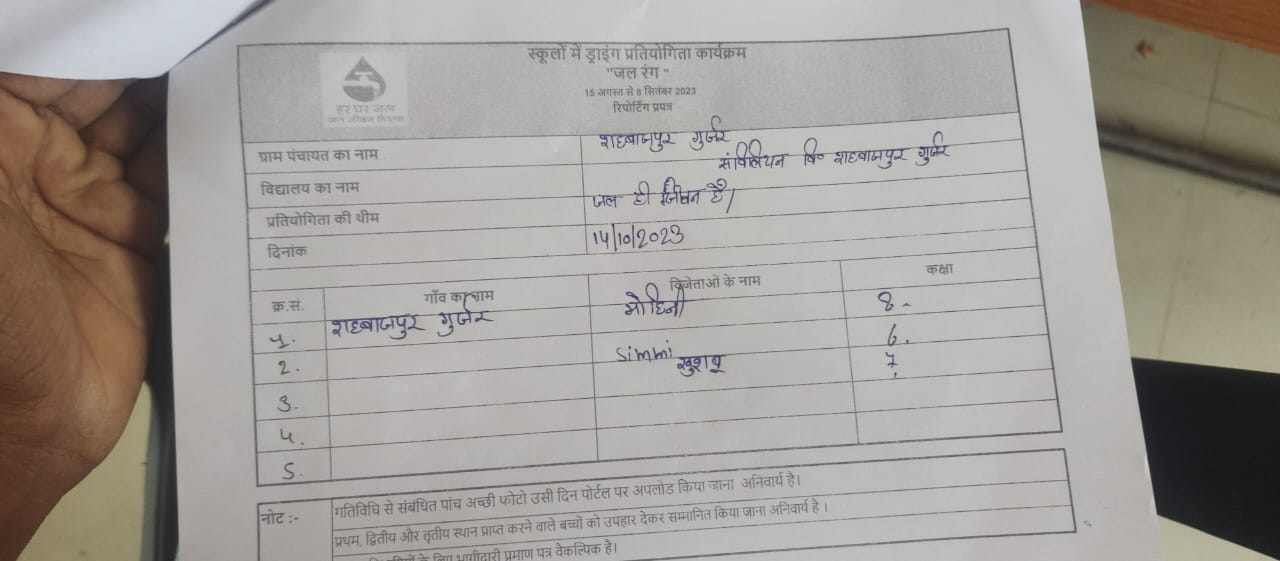 स्कूलों में ड्राइंग प्रतियोगिता कार्यक्रम
"जल रंग "
15 अगस्त से 8 सितंबर 2023
रिपोर्टिंग प्रपत्र
हर घर जल
जल जीवन मिशन
ग्राम पंचायत का नाम शहबाजपुर गुर्जर
विद्यालय का नाम संविलियन वि० शहबाजपुर गुर्जर
प्रतियोगिता की थीम जल ही जिवन है।
दिनांक 14/10/2023
क्र.सं. गाँव का नाम विजेताओं के नाम कक्षा
1. शहबाजपुर गुर्जर मोहिनी 8.
2. Simmi 6.
खुशबू 7.
3.
4.
5.
नोट :- गतिविधि से संबंधित पांच अच्छी फोटो उसी दिन पोर्टल पर अपलोड किया जाना अनिवार्य है।
प्रथम, द्वितीय और तृतीय स्थान प्राप्त करने वाले बच्चों को उपहार देकर सम्मानित किया जाना अनिवार्य है ।
के लिए भागीदारी प्रमाण पत्र वैकल्पिक है।